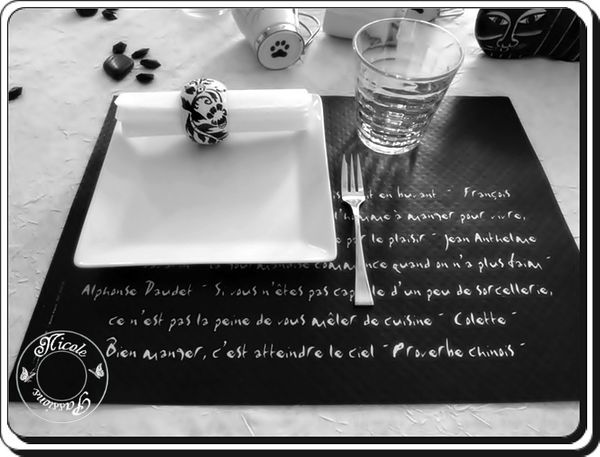 en buvant - François
l'homme à manger pour vivre,
par le plaisir - Jean Anthelme
La gourmandise commence quand on n'a plus faim -
Alphonse Daudet - Si vous n'êtes pas capable d'un peu de sorcellerie,
ce n'est pas la peine de vous mêler de cuisine - Colette -
Bien manger, c'est atteindre le ciel - Proverbe chinois -
Nicole
Passions